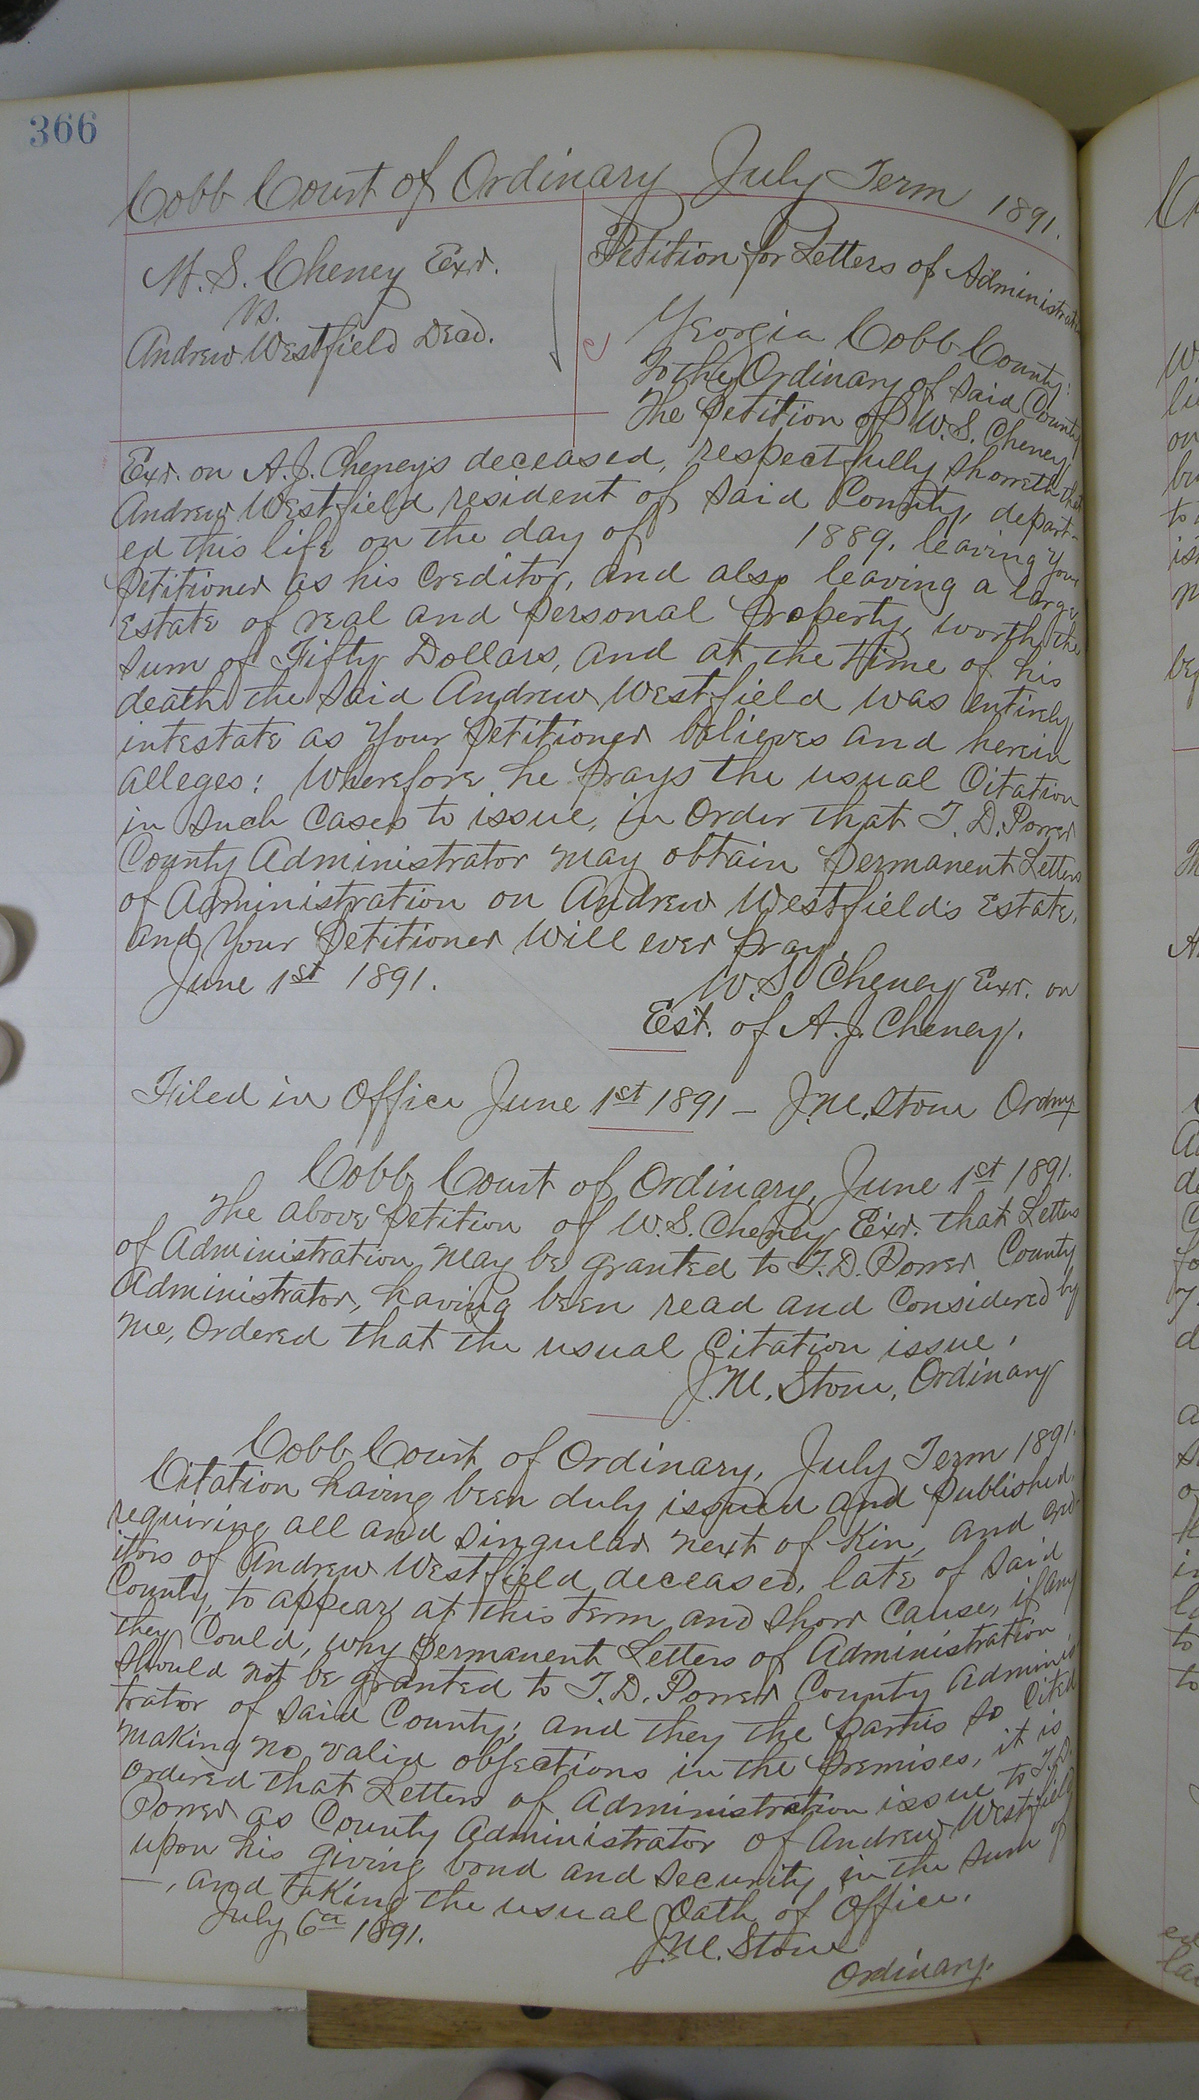 366
Cobb Court of Ordinary July Term 1891.
W. S. Cheney Exr.
vs.
Andrew Westfield Decd.
Petition for Letters of Administration
Georgia Cobb County:
To the Ordinary of said County
The Petition of W. S. Cheney,
Exr. on A. J. Cheney's deceased, respectfully showeth that
Andrew Westfield resident of said County, depart-
ed this life on the day of 1889, leaving your
Petitioner as his creditor, and also leaving a large
Estate of real and personal Property, worth the
sum of Fifty Dollars, and at the time of his
death the said Andrew Westfield was entirely
intestate as your Petitioner believes and herein
alleges: Wherefore he prays the usual Citation
in such cases to issue, in order that T. D. Power
County Administrator may obtain permanent Letters
of Administration on Andrew Westfield's Estate,
and your Petitioner will ever pray.
June 1st 1891.
W. S. Cheney Exr. on
Est. of A. J. Cheney.
Filed in Office June 1st 1891 – J. M. Stone Ordny
Cobb Court of Ordinary, June 1st 1891.
The above Petition of W. S. Cheney Exr. that Letters
of Administration may be granted to T. D. Power County
Administrator, having been read and considered by
me, ordered that the usual Citation issue.
J. M. Stone, Ordinary
Cobb Court of Ordinary, July Term 1891.
Citation having been duly issued and published
requiring all and singular next of kin, and cred-
itors of Andrew Westfield, deceased, late of said
County, to appear at this term and show cause, if any
they could, why permanent Letters of Administration
should not be granted to T. D. Power County Adminis
trator of said County; and they the parties so cited
making no valid objections in the premises, it is
ordered that Letters of Administration issue to T. D.
Power as County Administrator of Andrew Westfield
upon his giving bond and security in the sum of
—, and taking the usual Oath of Office.
July 6th 1891.
J. M. Stone
Ordinary.